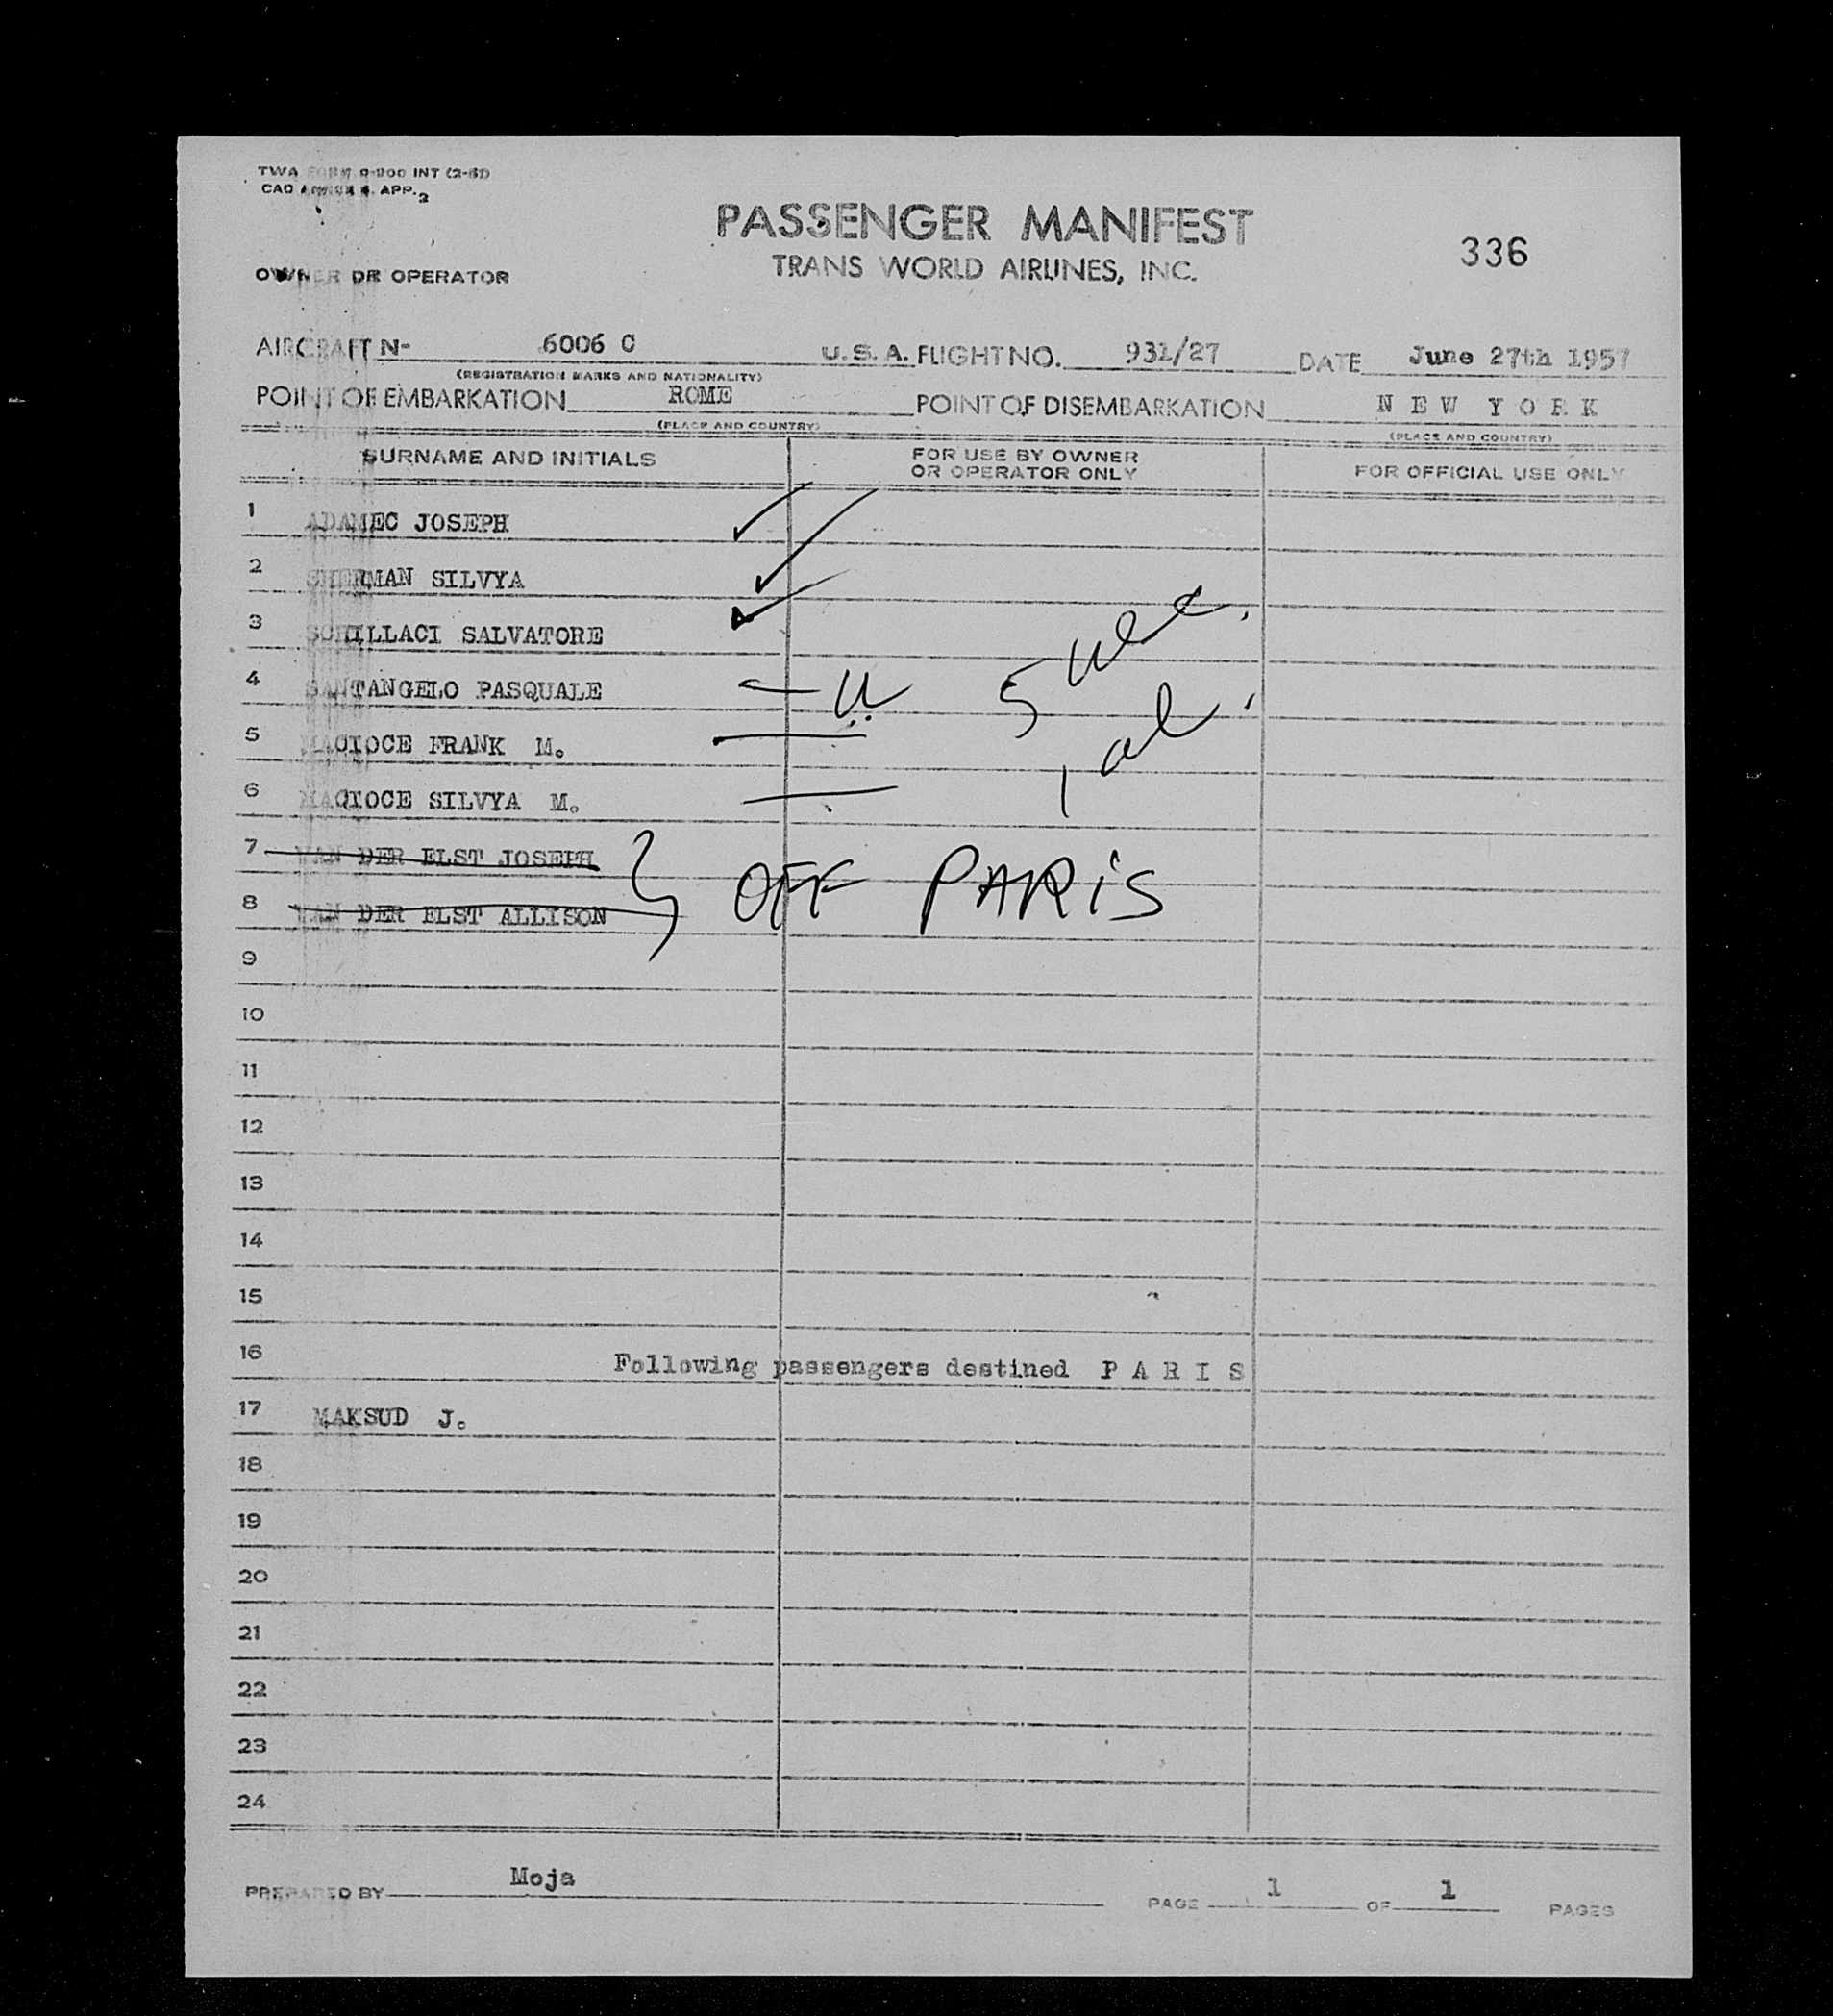 TWA FORM INT
APP. 2
PASSENGER MANIFEST
336
TRANS WORLD AIRLINES, INC.
OWNER OR OPERATOR
AIRCRAFT N- 6006 C U.S.A. FLIGHT NO. 931/27 DATE June 27th 1957
(REGISTRATION MARKS AND NATIONALITY)
POINT OF EMBARKATION ROME POINT OF DISEMBARKATION NEW YORK
(PLACE AND COUNTRY) (PLACE AND COUNTRY)
SURNAME AND INITIALS FOR USE BY OWNER OR OPERATOR ONLY FOR OFFICIAL USE ONLY
1 ADAMEC JOSEPH
2 SHERMAN SILVYA
3 SCHILLACI SALVATORE
4 SANTANGELO PASQUALE
5 FRANK M.
6 SILVYA M.
7 VAN DER ELST JOSEPH
8 VAN DER ELST ALLISON
OFF PARIS
9
10
11
12
13
14
15
16 Following passengers destined PARIS
17 MAKSUD J.
18
19
20
21
22
23
24
PREPARED BY Moja PAGE 1 OF 1 PAGES